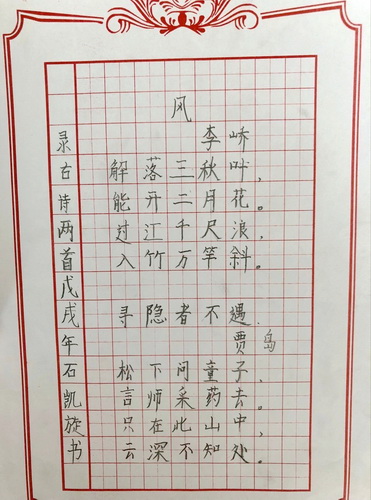 风
李峤
解落三秋叶，
能开二月花。
过江千尺浪，
入竹万竿斜。
寻隐者不遇.
贾岛
松下问童子，
言师采药去。
只在此山中，
云深不知处。
录古诗两首戊戌年石凯旋书